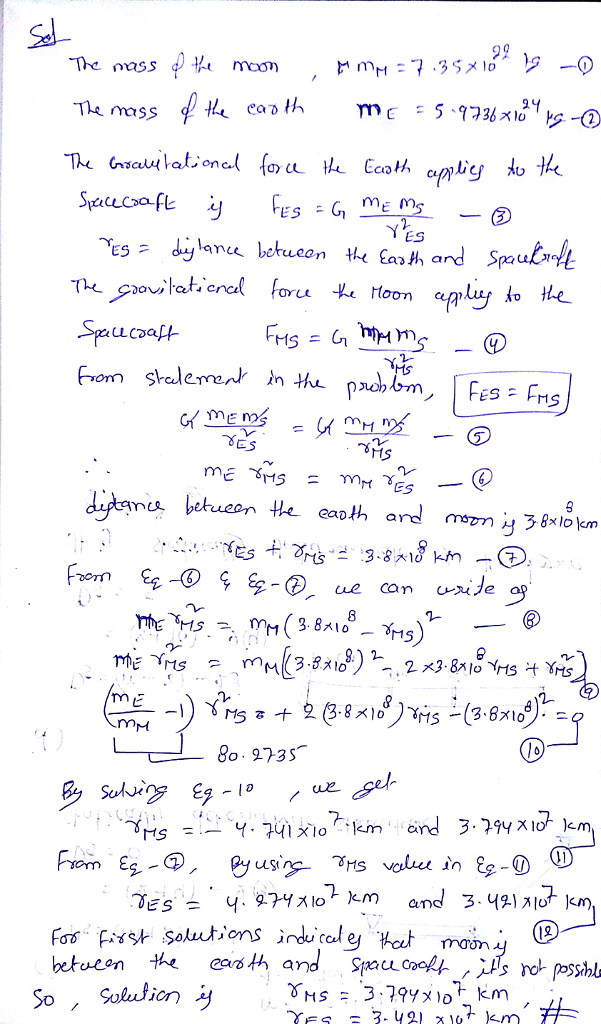 Sol
The mass of the moon , mM = 7.35×10^22 kg —①
The mass of the earth mE = 5.9736×10^24 kg —②
The Gravitational force the Earth applies to the
Spacecraft is FES = G mE ms / r²ES —③
rES = distance between the Earth and spacecraft
The gravitational force the Moon applies to the
Spacecraft FMS = G mM ms / r²MS —④
From statement in the problem, FES = FMS
G mE ms / r²ES = G mM ms / r²MS —⑤
∴ mE r²MS = mM r²ES —⑥
distance between the earth and moon is 3.8×10^8 km
rES + rMS = 3.8×10^8 km —⑦
From Eq-⑥ & Eq-⑦, we can write as
mE r²MS = mM(3.8×10^8 - rMS)² —⑧
mE r²MS = mM((3.8×10^8)² - 2×3.8×10^8 rMS + r²MS) ⑨
(mE/mM - 1) r²MS + 2(3.8×10^8) rMS - (3.8×10^8)² = 0
80.2735 ⑩
By solving Eq-10 , we get
rMS = - 4.741×10^7 km and 3.794×10^7 km,
From Eq-⑦, By using rMS value in Eq-⑪ ⑪
rES = 4.274×10^7 km and 3.421×10^7 km,
For First solutions indicates that moon is ⑫
between the earth and spacecraft, it's not possible
So , solution is rMS = 3.794×10^7 km ,
rES = 3.421×10^7 km #